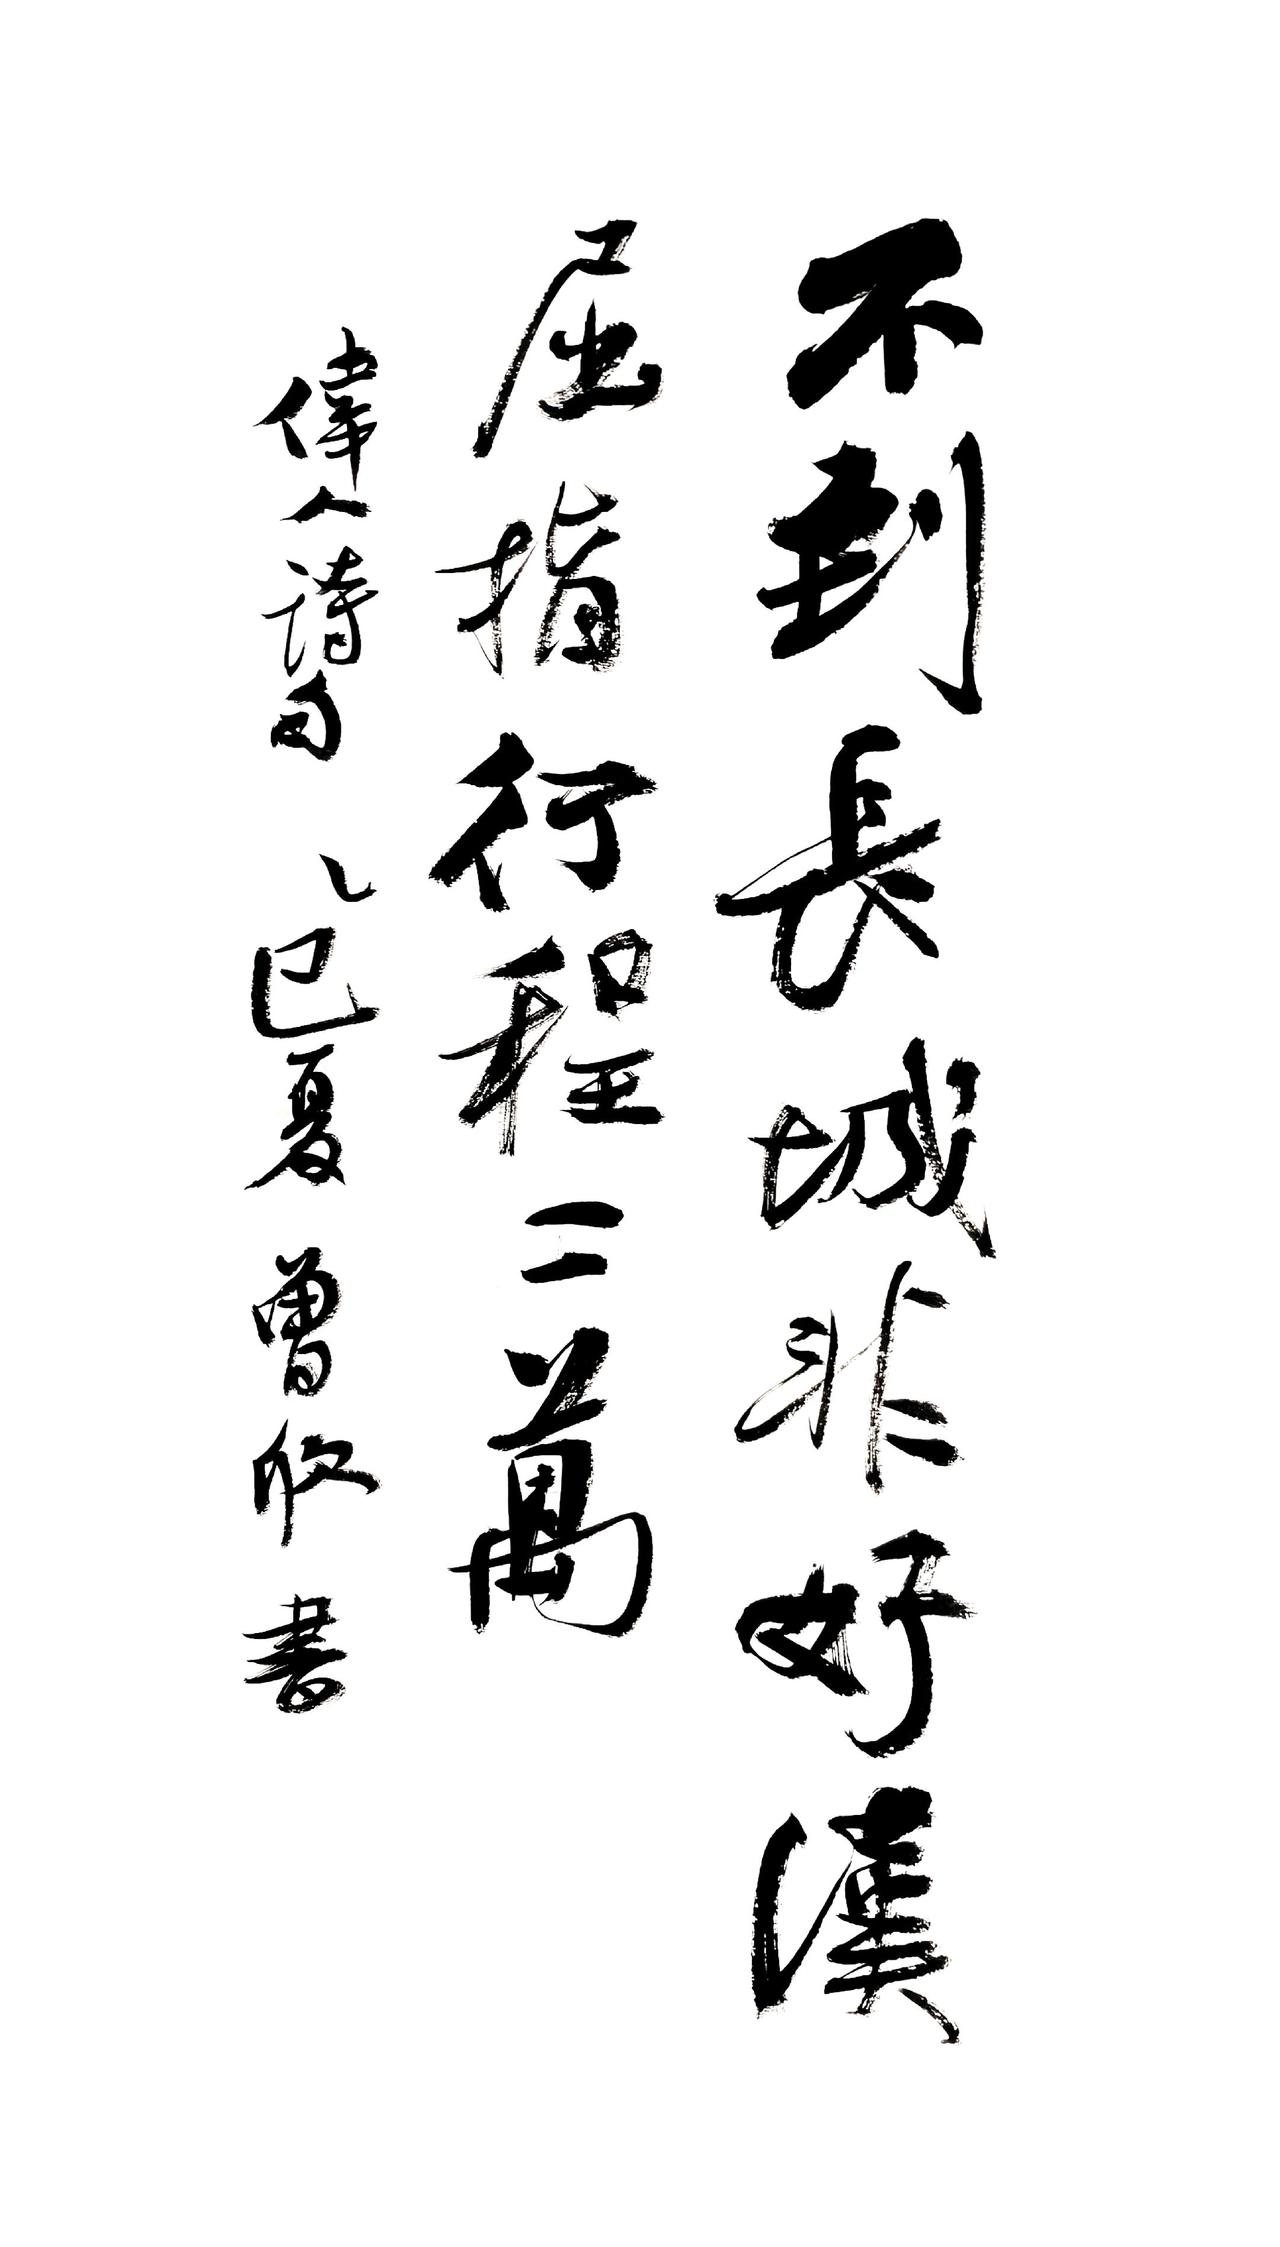 不到長城非好漢
屈指行程二萬
偉人詩句 乙巳夏 曾欣書